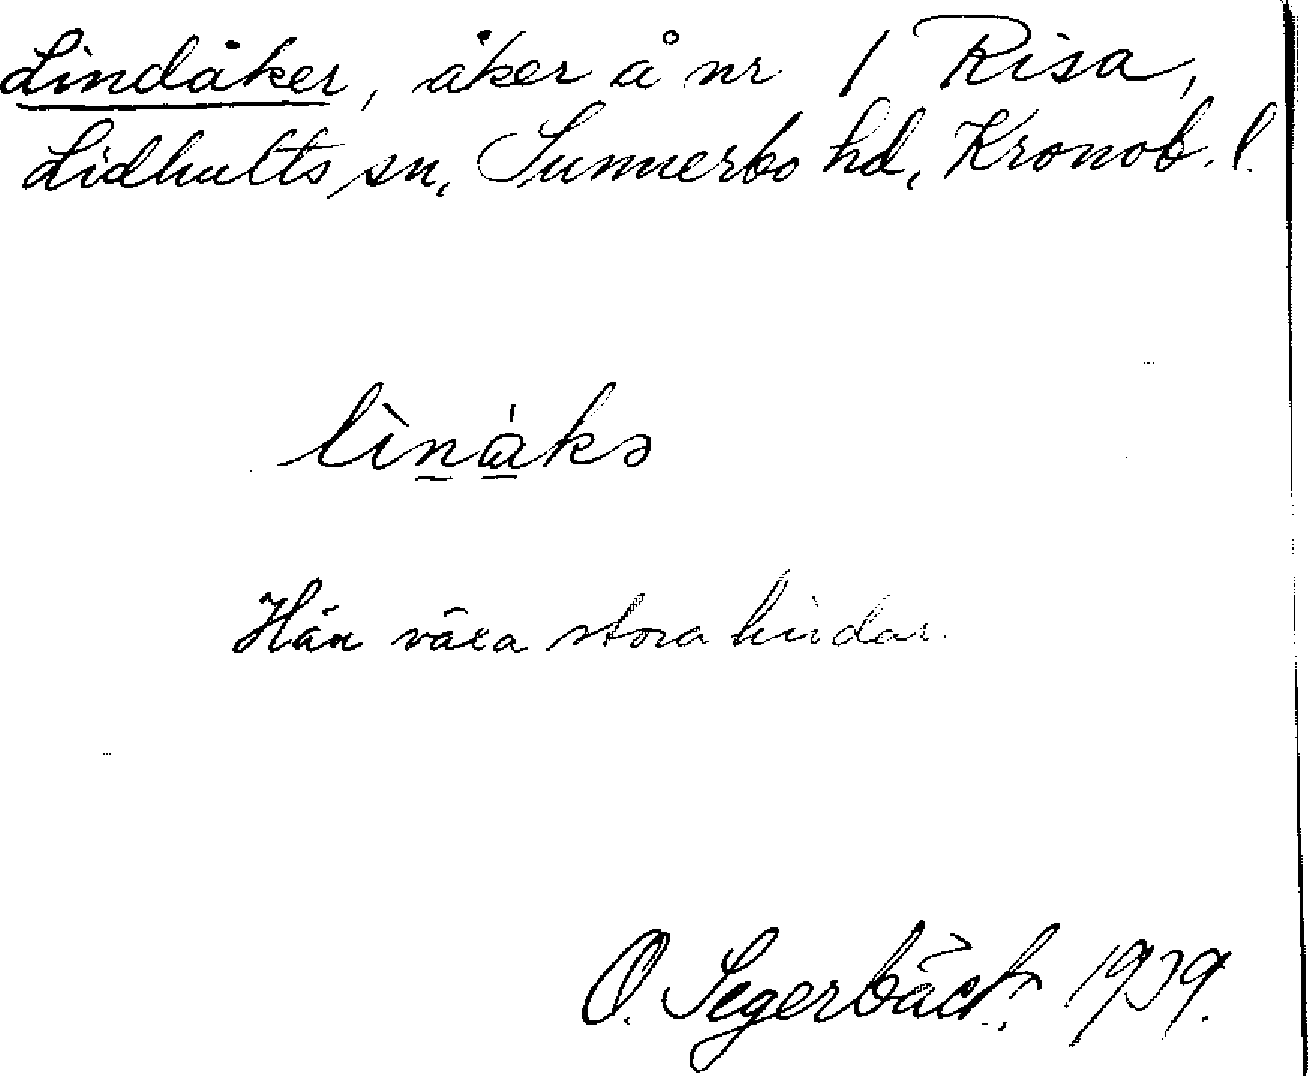 Lindåker, åker å nr 1 Risa,
Lidhults sn, Sunnerbo hd, Kronob. l.
lìnákə
Här växa stora lindar.
O. Segerbäck. 1939.